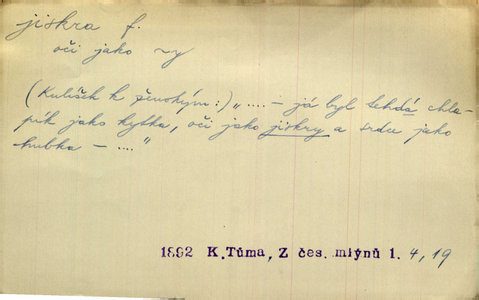 jiskra f.
oči jako ~y
(Kulíšek k ženským:) „.... – já byl tehdá chla-
pík jako kytka, oči jako jiskry a srdce jako
hubka – ...."
1892 K. Tůma, Z čes. mlýnů 1. 4, 19